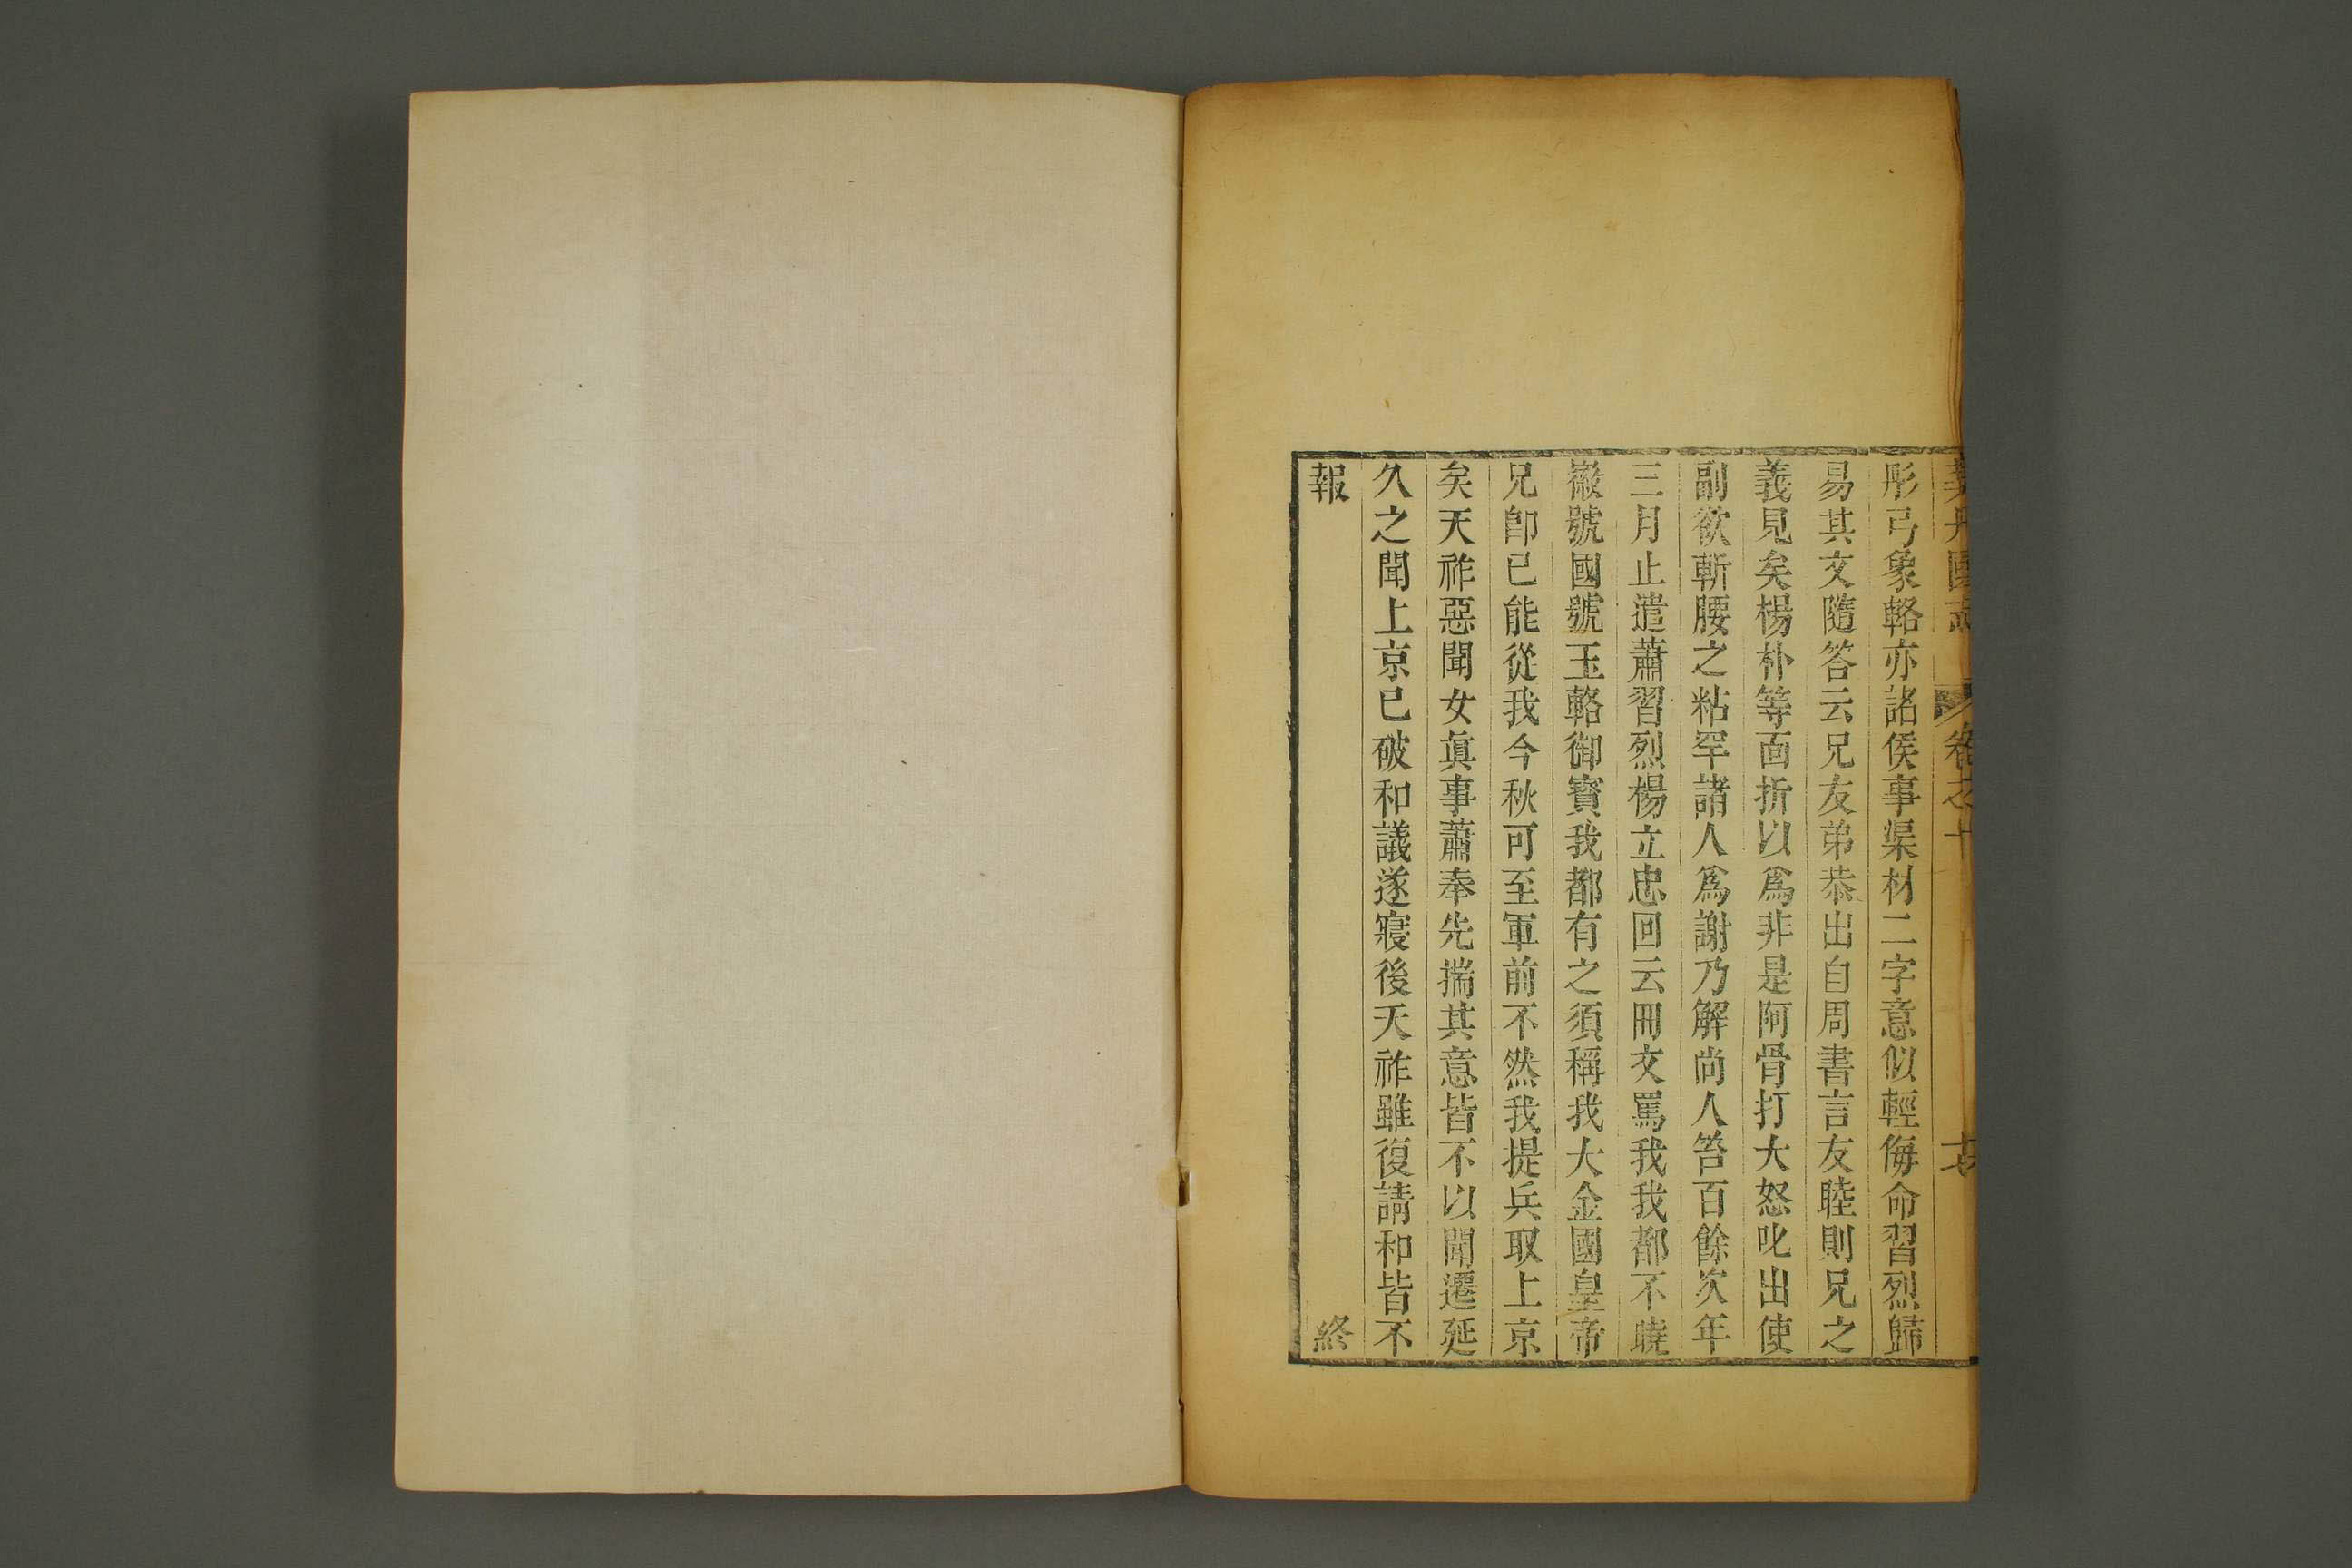 契丹國志 卷之十 十七
彤弓象輅亦諸侯事渠材二字意似輕侮命習烈歸
易其文隨答云兄友弟恭出自周書言友睦則兄之
義見矣楊朴等面折以爲非是阿骨打大怒叱出使
副欲斬腰之粘罕諸人爲謝乃解尚人笞百餘次年
三月止遣蕭習烈楊立忠回云冊文罵我我都不曉
徽號國號玉輅御寶我都有之須稱我大金國皇帝
兄卽已能從我今秋可至軍前不然我提兵取上京
矣天祚惡聞女眞事蕭奉先揣其意皆不以聞遷延
久之聞上京已破和議遂寢後天祚雖復請和皆不
報 終